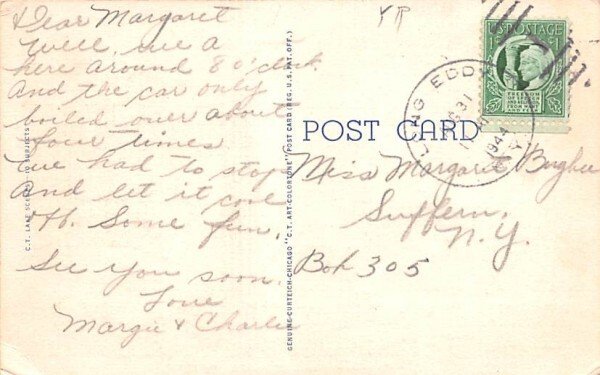 Dear Margaret
Well, we a
here around 8 o'clock
And the car only
boiled over about
four times
we had to stop
And let it cool
off. Some fun.
See you soon.
Love
Margie & Charlie
C.T. LAKE SCENES (10 SUBJECTS)
GENUINE CURTEICH-CHICAGO "C.T. ART-COLORTONE" POST CARD (REG. U.S. PAT. OFF.)
POST CARD
LONG EDDY
31
1944
N.Y.
U.S. POSTAGE
1¢ 1¢
FREEDOM
OF SPEECH
AND RELIGION,
FROM WANT
AND FEAR
Miss Margaret
Suffern,
N.Y.
Box 305